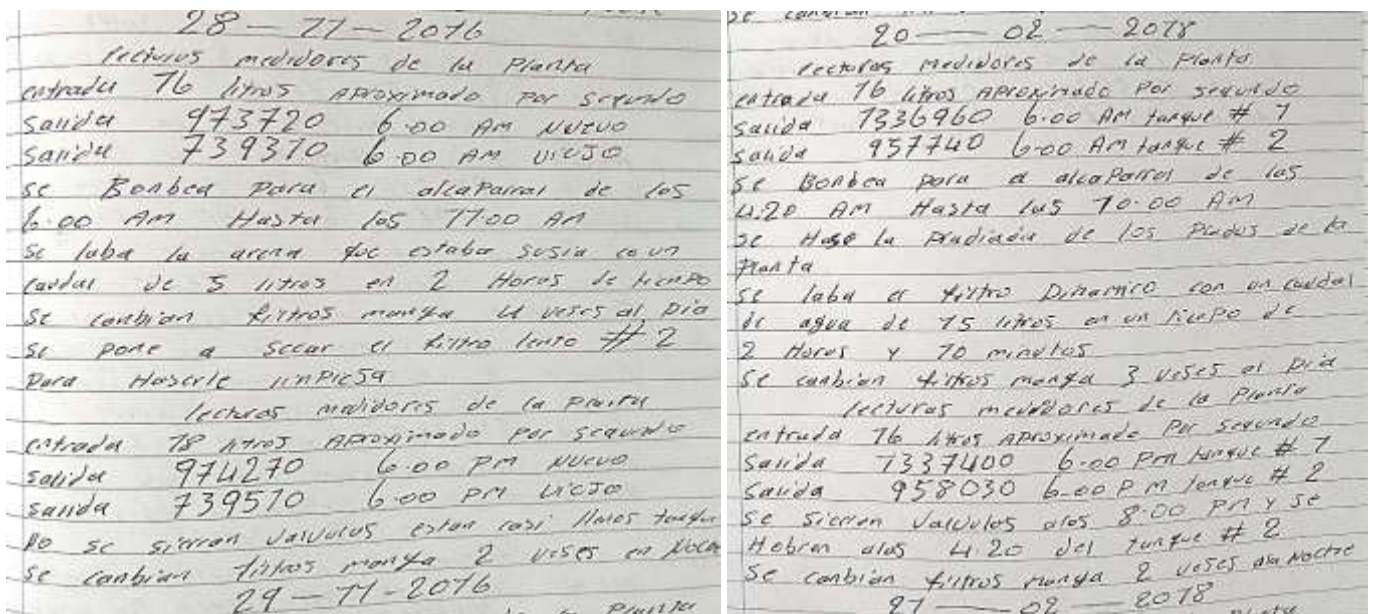 28 — 11 — 2016
lecturas medidores de la Planta
entrada 16 litros APROXimado por segundo
Salida 913720 6.00 AM NUEVO
Salida 739310 6.00 AM VIEJO
se Bonbea Para el alcaParral de las
6.00 AM Hasta las 11.00 AM
Se laba la arena que estaba susia co un
caudal de 5 litros en 2 Horas de tienpo
Se canbian filtros manga 4 veses al Dia
Se pone a Secar el filtro lento # 2
Para Haserle linPiesa
lecturas medidores de la Planta
entrada 18 litros APROXimado por segundo
Salida 914210 6.00 PM NUEVO
Salida 739510 6.00 PM VIEJO
No se sierran valvulas estan casi llenos tanque
Se canbian filtros manga 2 veses en Noche
29 — 11 - 2016
Planta
se canbian
20 — 02 — 2018
lecturas Medidores de la Planta
entrada 16 litros APROXimado Por segundo
Salida 1336960 6.00 AM tanque # 1
Salida 957740 6.00 AM tanque # 2
Se Bonbea para el alcaParral de las
4.20 AM Hasta las 10.00 AM
Se Hase la Pradiada de los Prados de la
Planta
Se laba el filtro Dinamico con un caudal
de agua de 15 litros en un tienpo de
2 Horas y 10 minutos
Se canbian filtros manga 3 veses al Dia
lecturas medidores de la Planta
entrada 16 litros APROXimado Por Segundo
Salida 1337400 6.00 Pm tanque # 1
Salida 958030 6.00 PM tanque # 2
Se sierran valvulas alas 8.00 PM y se
Habren alas 4.20 del tanque # 2
Se canbian filtros manga 2 veses ala Noche
21 — 02 — 2018